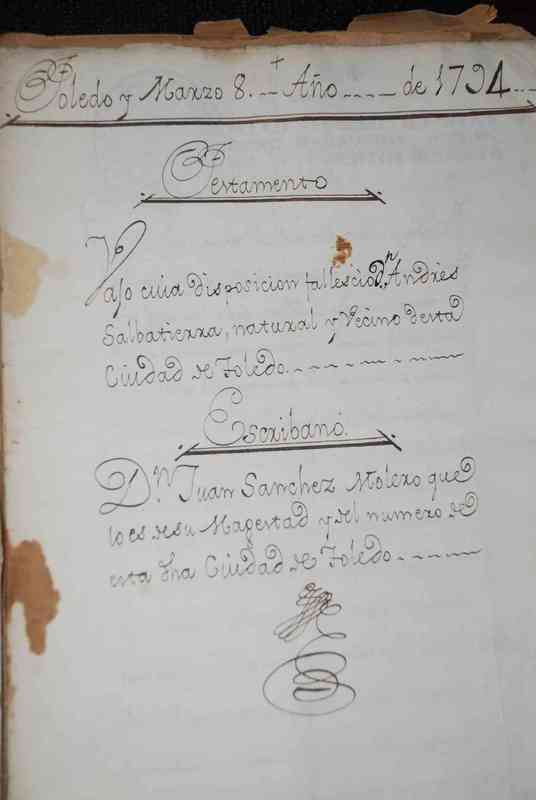 +
Toledo y Marzo 8. -- Año ---- de 1794 --
Testamento
Vajo cuia disposicion fallescio Dn. Andres
Salbatierra, natural y Vecino desta
Ciudad de Toledo.
Escribano.
Dn. Juan Sanchez Molero que
lo es de su Magestad y del numero de
esta dha Ciudad de Toledo.